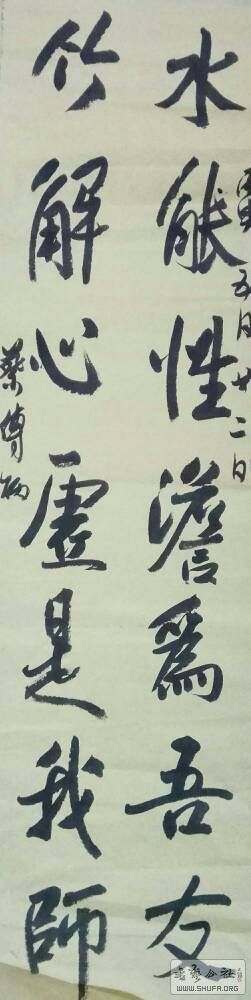 水能性澹爲吾友
五月廿二日
竹解心虛是我師
書藝公社
WWW.SHUFA.ORG